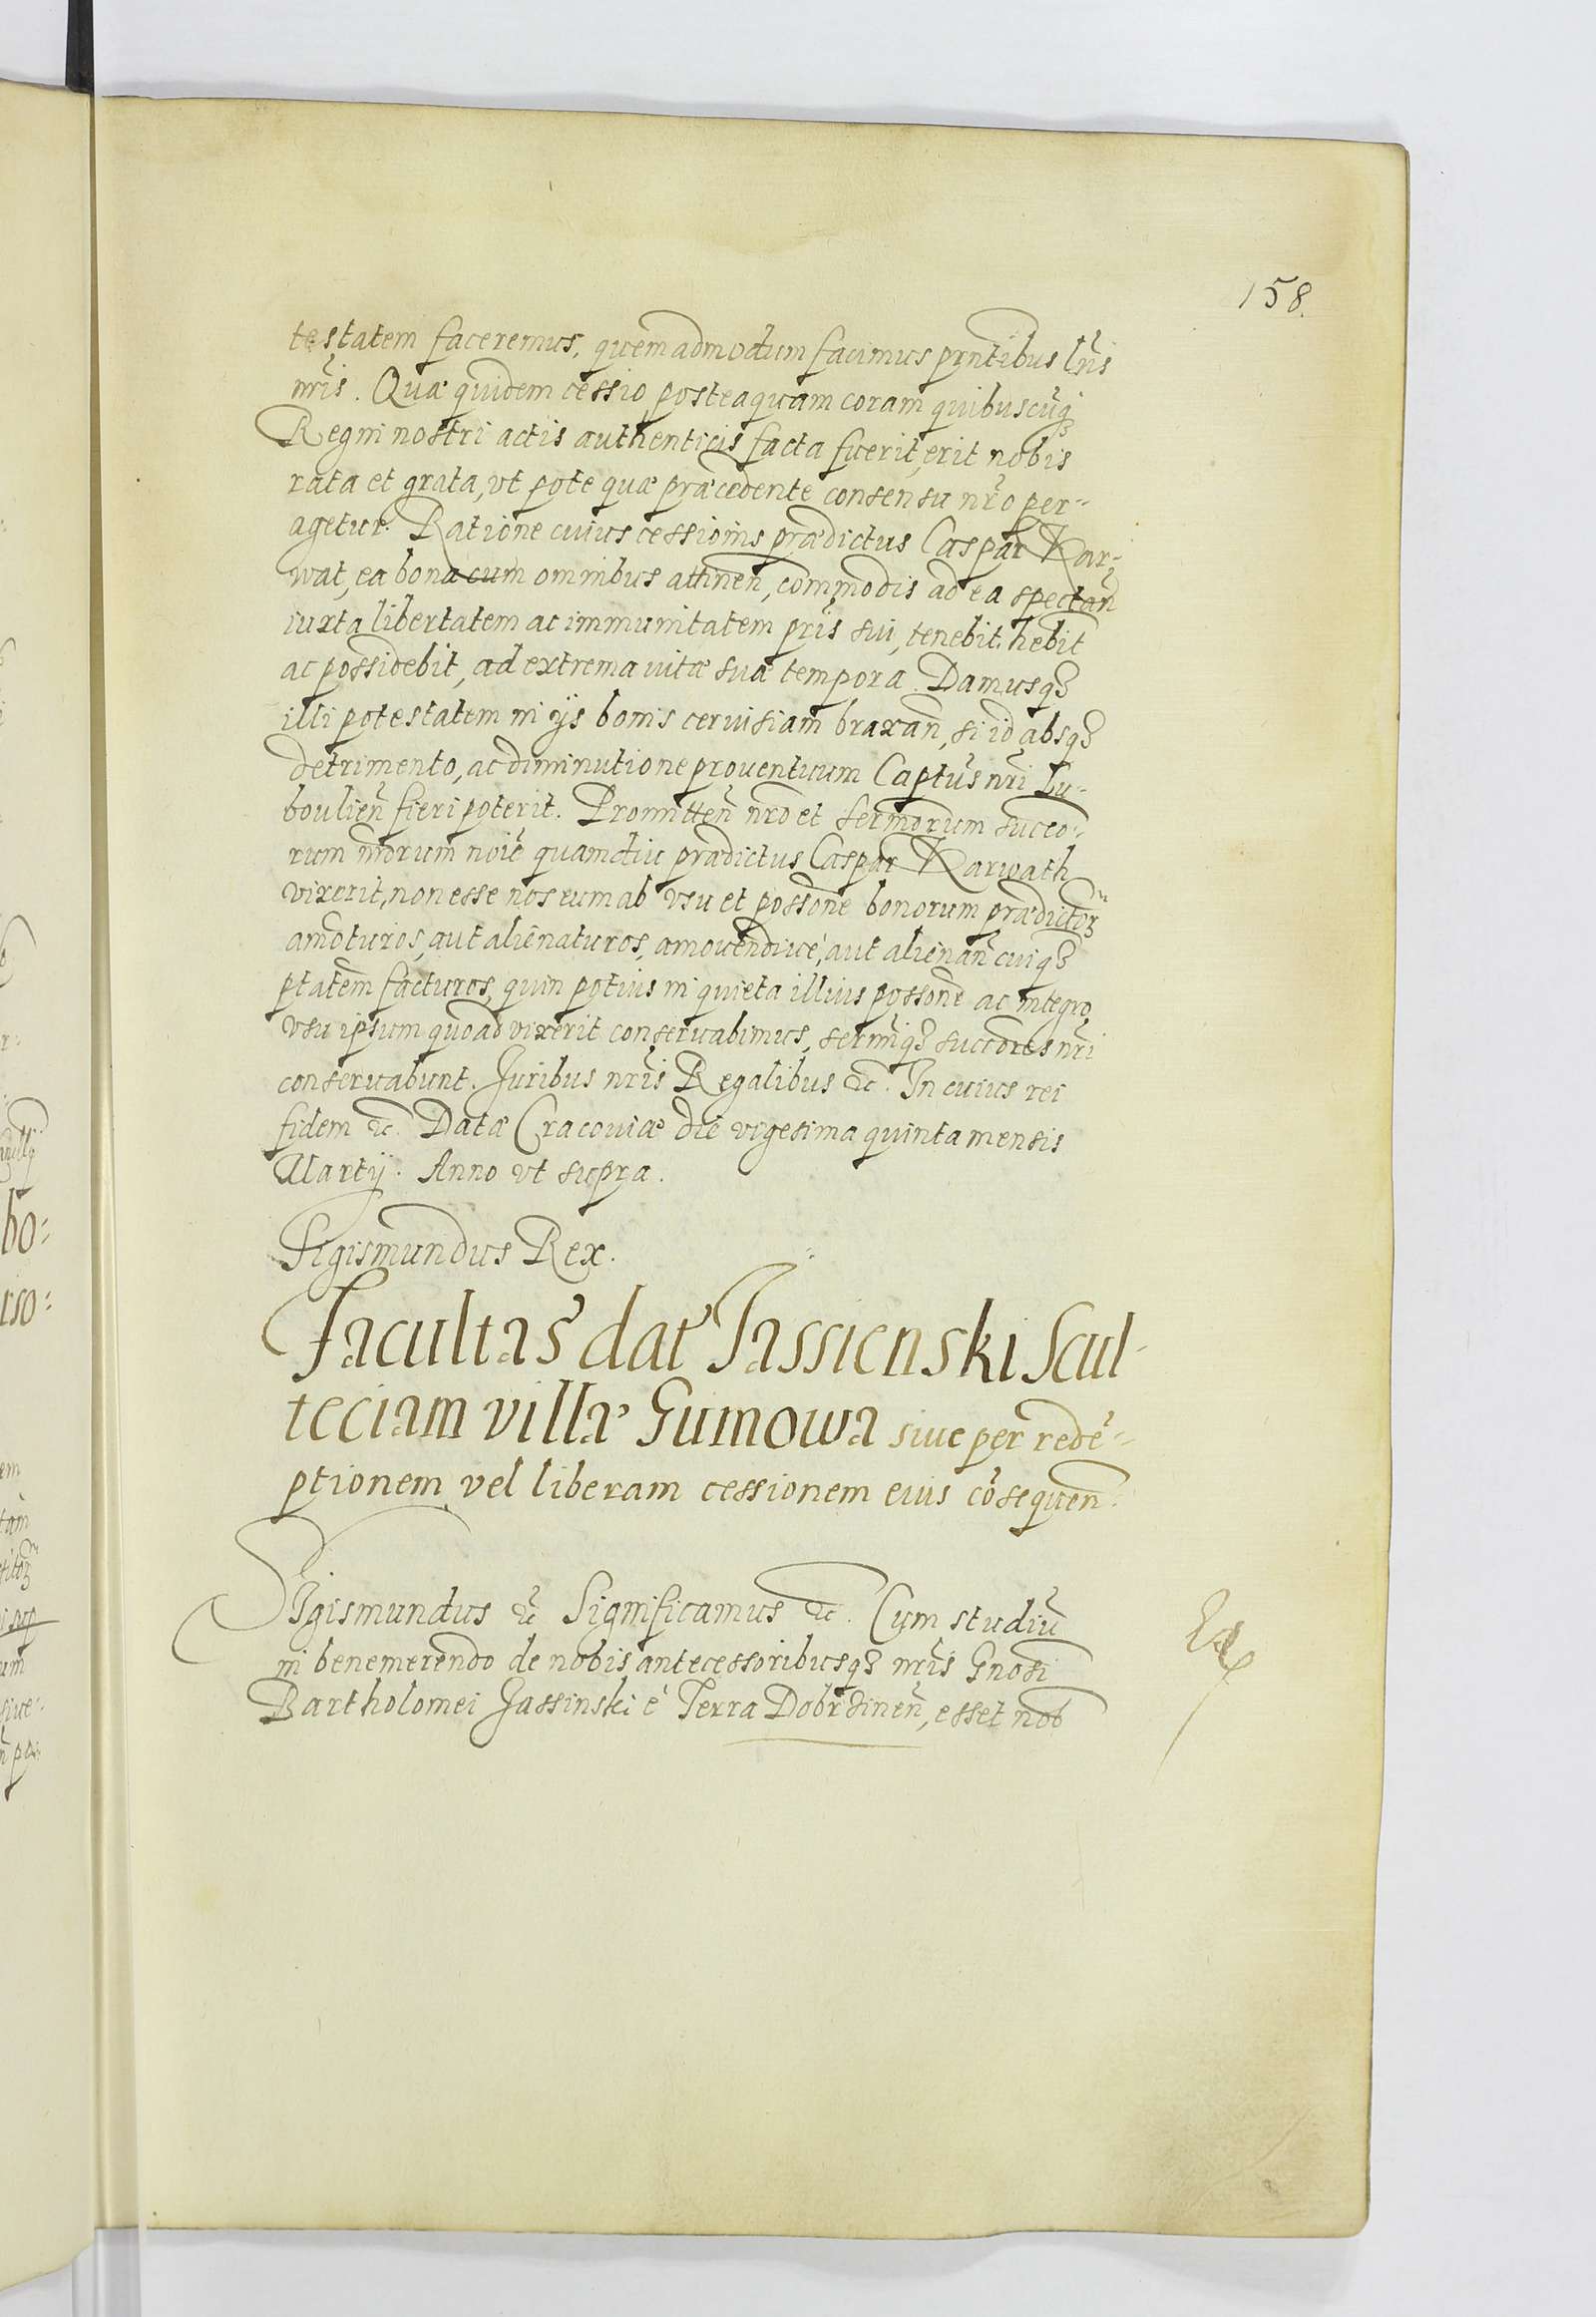 158.
testatem faceremus, quemadmodum facimus pr̃ntibus lr̃is
nr̃is. Quæ quidem cessio posteaquam coram quibuscũqꝫ
Regni nostri actis authenticis facta fuerit, erit nobis
rata et grata, vt pote quæ præcedente consensu nr̃o per-
agetur. Ratione cuius cessionis prædictus Caspar Kar-
wat, ea bona cum omnibus attinen̄, commodis ad ea spectan̄
iuxta libertatem ac immunitatem pr̃is sui, tenebit, hebit
ac possidebit, ad extrema vitæ suæ tempora. Damusqꝫ
illi potestatem in ijs bonis ceruisiam braxan̄, si id absqꝫ
detrimento, ac diminutione prouentuum Captũs nr̃i Lu-
boulien̄ fieri poterit. Promitten̄ nr̃o et sermorum succo-
rum nr̃orum noĩe quamdiu prædictus Caspar Karwath
vixerit, non esse nos eum ab vsu et possone bonorum prædictoꝝ
amoturos, aut alienaturos, amouendiue, aut alienan̄ cuiqꝫ
ptatem facturos, quin potius in quieta illius possone ac integro
vsu ipsum quoad vixerit conseruabimus, sermiqꝫ succores nr̃i
conseruabunt. Juribus nr̃is Regalibus &c. In cuius rei
fidem &c. Datæ Cracouiæ die vigesima quinta mensis
Martij. Anno vt supra.
Sigismundus Rex.
Facultas dat̃ Jassienski Scul-
teciam villæ Gumowa siue per redẽ-
ptionem, vel liberam cessionem eius cõsequen̄.
SIgismundus &c Significamus &c. Cum studiũ
in benemerendo de nobis antecessoribusqꝫ nr̃is Gnosi
Bartholomei Jassinski è Terra Dobrzinen̄, esset nob